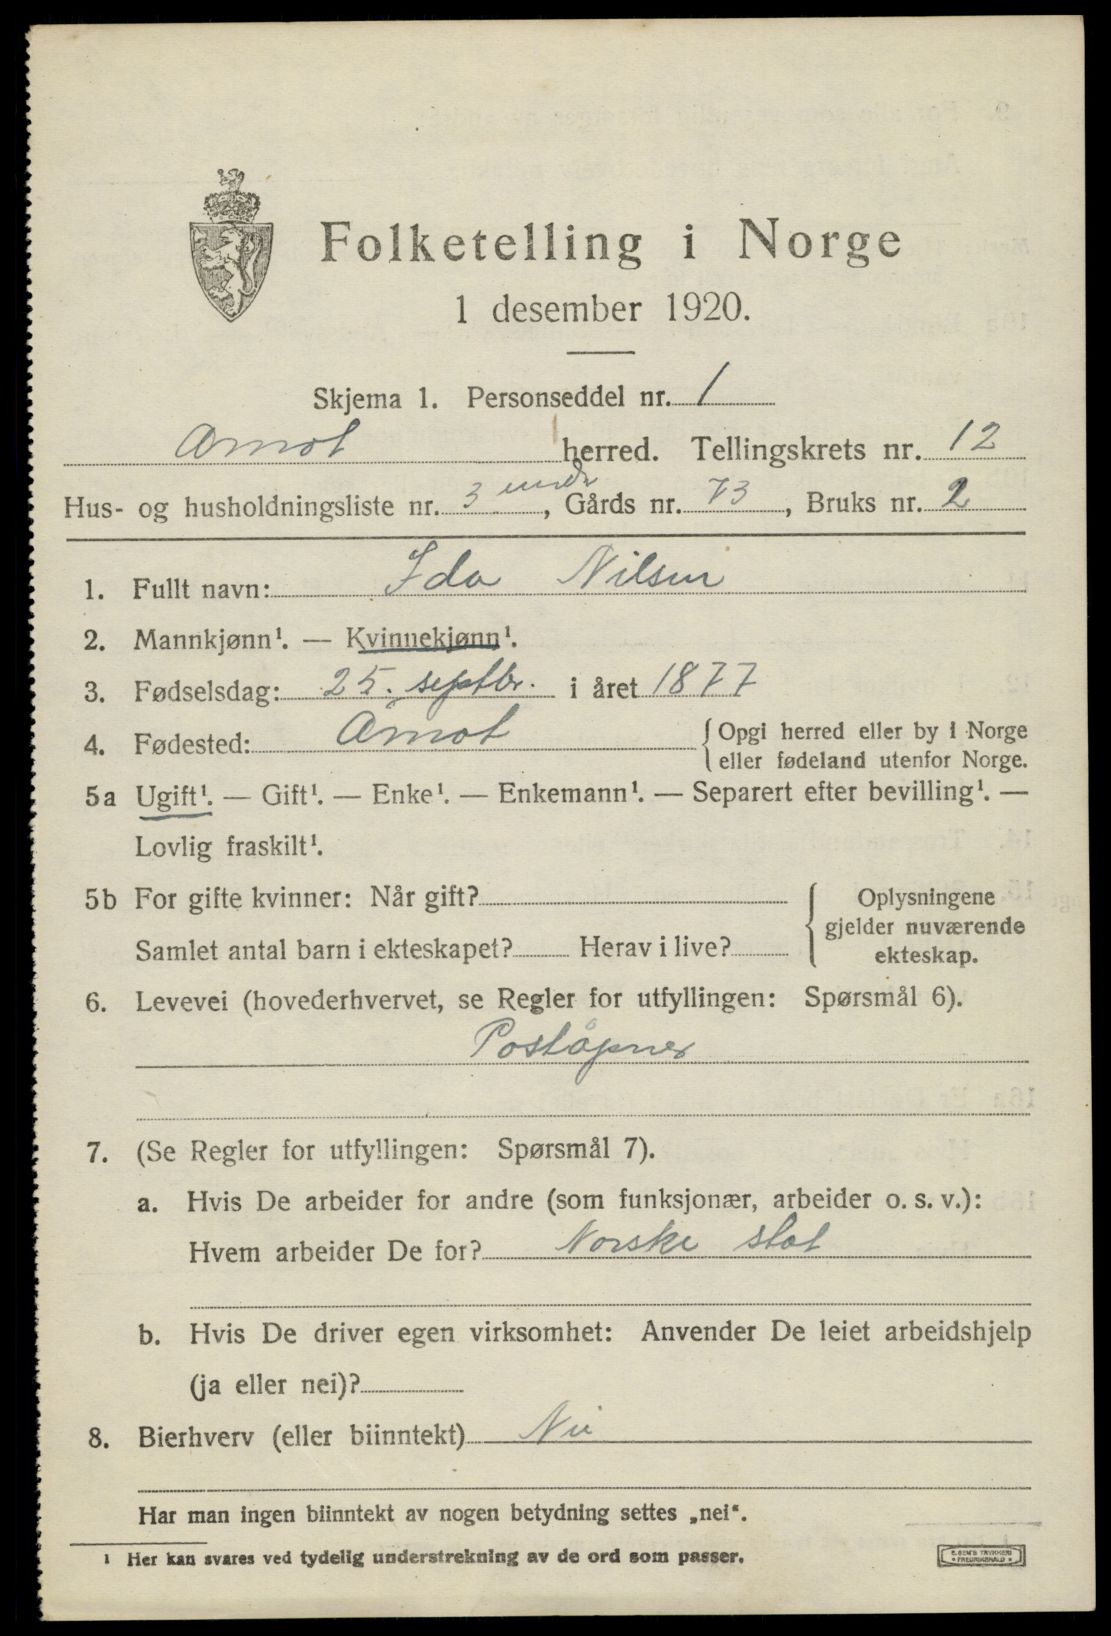 Folketelling i Norge
1 desember 1920.
Skjema 1. Personseddel nr. 1
Åmot herred. Tellingskrets nr. 12
Hus- og husholdningsliste nr. 3, Gårds nr. 73, Bruks nr. 2
1. Fullt navn: Ida Nilsen
2. Mannkjønn¹. — Kvinnekjønn¹.
3. Fødselsdag: 25. septbr. i året 1877
4. Fødested: Åmot {Opgi herred eller by i Norge
eller fødeland utenfor Norge.
5a Ugift¹. — Gift¹. — Enke¹. — Enkemann¹. — Separert efter bevilling¹. —
Lovlig fraskilt¹.
5b For gifte kvinner: Når gift?
Samlet antal barn i ekteskapet? Herav i live?
{Oplysningene
gjelder nuværende
ekteskap.
6. Levevei (hovederhvervet, se Regler for utfyllingen: Spørsmål 6).
Poståpner
7. (Se Regler for utfyllingen: Spørsmål 7).
a. Hvis De arbeider for andre (som funksjonær, arbeider o. s. v.):
Hvem arbeider De for? Norske stat
b. Hvis De driver egen virksomhet: Anvender De leiet arbeidshjelp
(ja eller nei)?
8. Bierhverv (eller biinntekt) Nei
Har man ingen biinntekt av nogen betydning settes „nei“.
¹ Her kan svares ved tydelig understrekning av de ord som passer.
E. SEM'S TRYKKERI
• FREDRIKSHALD •